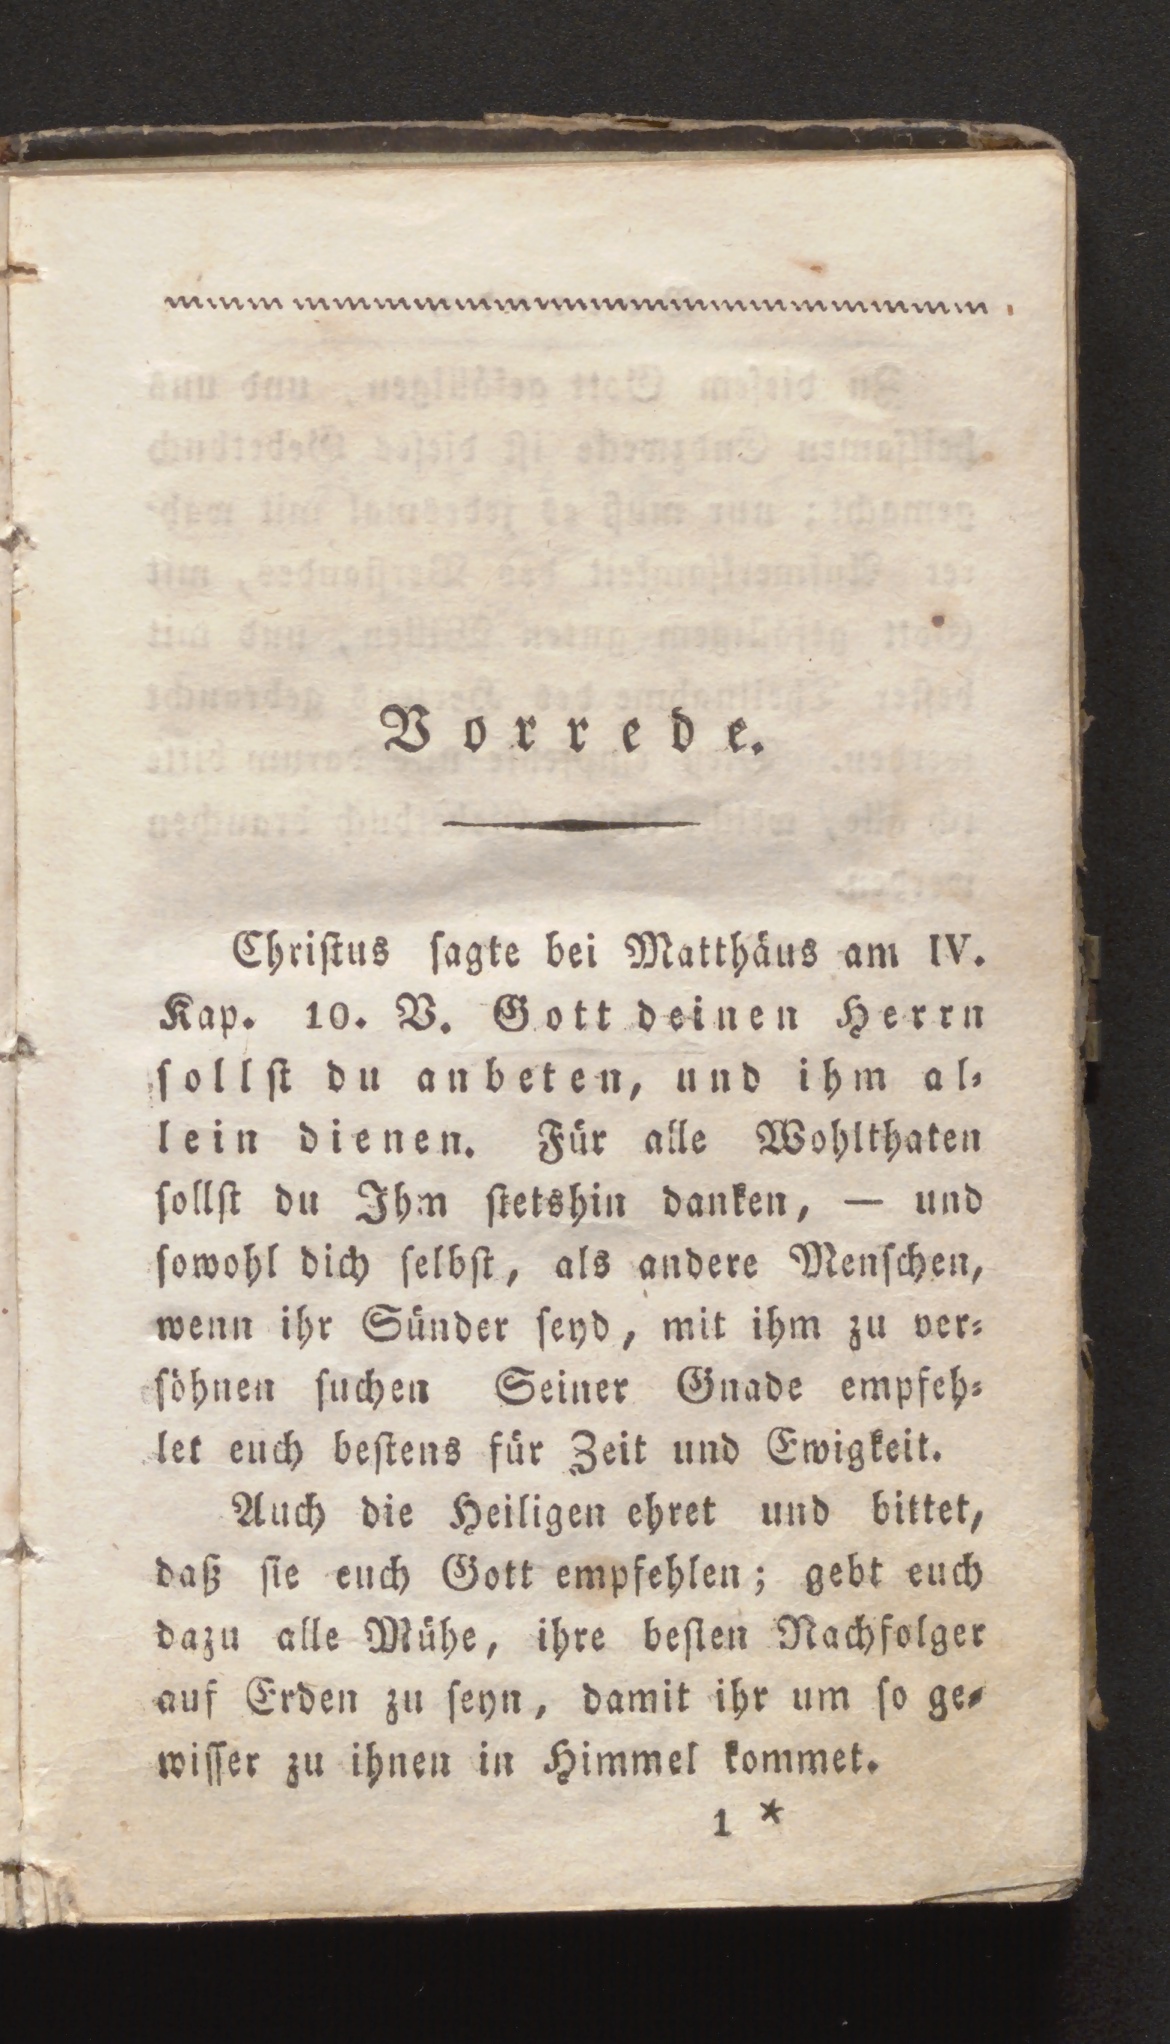 Vorrede.
Chriſtus ſagte bei Matthäus am IV.
Kap. 10. V. Gott deinen Herrn
ſollſt du anbeten, und ihm al⸗
lein dienen. Für alle Wohlthaten
ſollſt du Ihm ſtetshin danken, — und
ſowohl dich ſelbſt, als andere Menſchen,
wenn ihr Sünder ſeyd, mit ihm zu ver⸗
ſöhnen ſuchen Seiner Gnade empfeh⸗
let euch beſtens für Zeit und Ewigkeit.
Auch die Heiligen ehret und bittet,
daß ſie euch Gott empfehlen; gebt euch
dazu alle Mühe, ihre beſten Nachfolger
auf Erden zu ſeyn, damit ihr um ſo ge⸗
wiſſer zu ihnen in Himmel kommet.
1 *